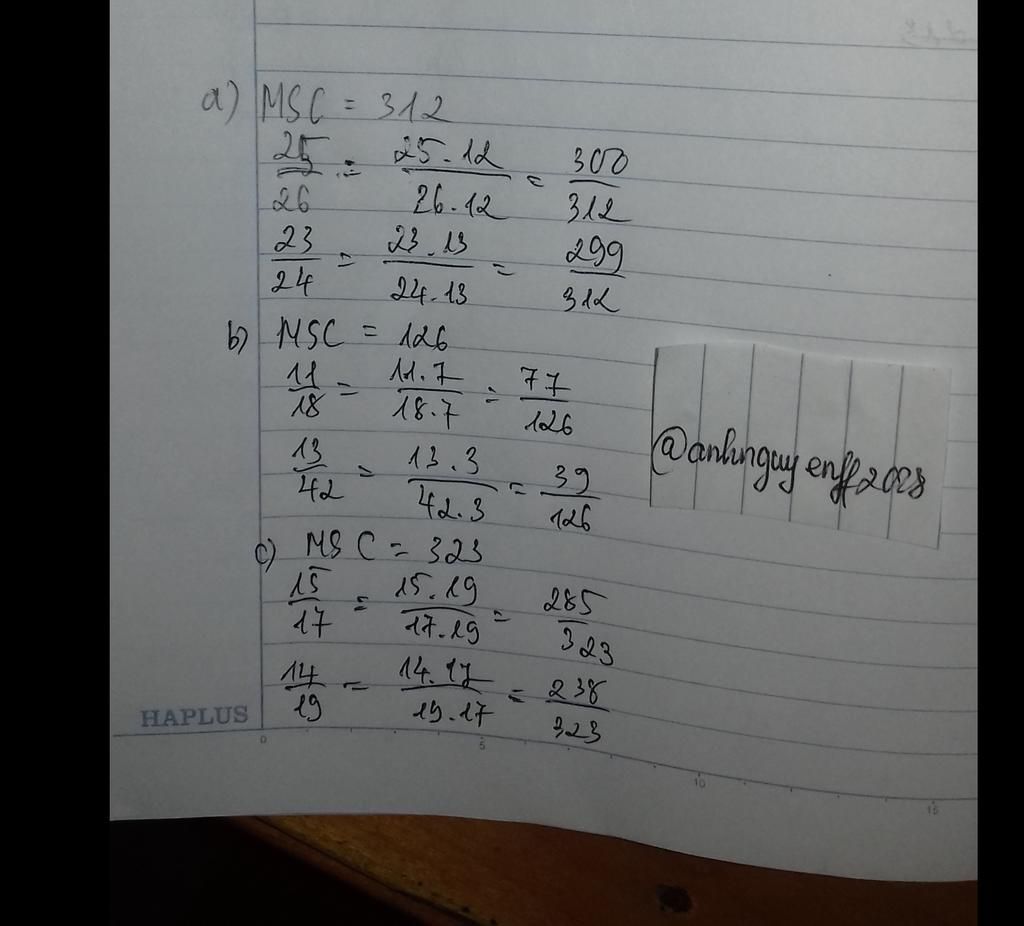 a) MSC = 312
25/26 = 25.12/26.12 = 300/312
23/24 = 23.13/24.13 = 299/312
b) MSC = 126
11/18 = 11.7/18.7 = 77/126
13/42 = 13.3/42.3 = 39/126
@anhnguyenff2008
c) MSC = 323
15/17 = 15.19/17.19 = 285/323
14/19 = 14.17/19.17 = 238/323
HAPLUS
0 5 10 15